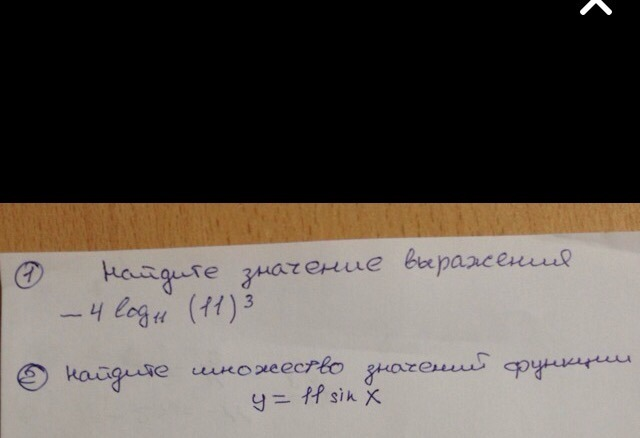 ① Найдите значение выражения
- 4 log₁₁ (11)³
② Найдите множество значений функции
y = 11 sin x